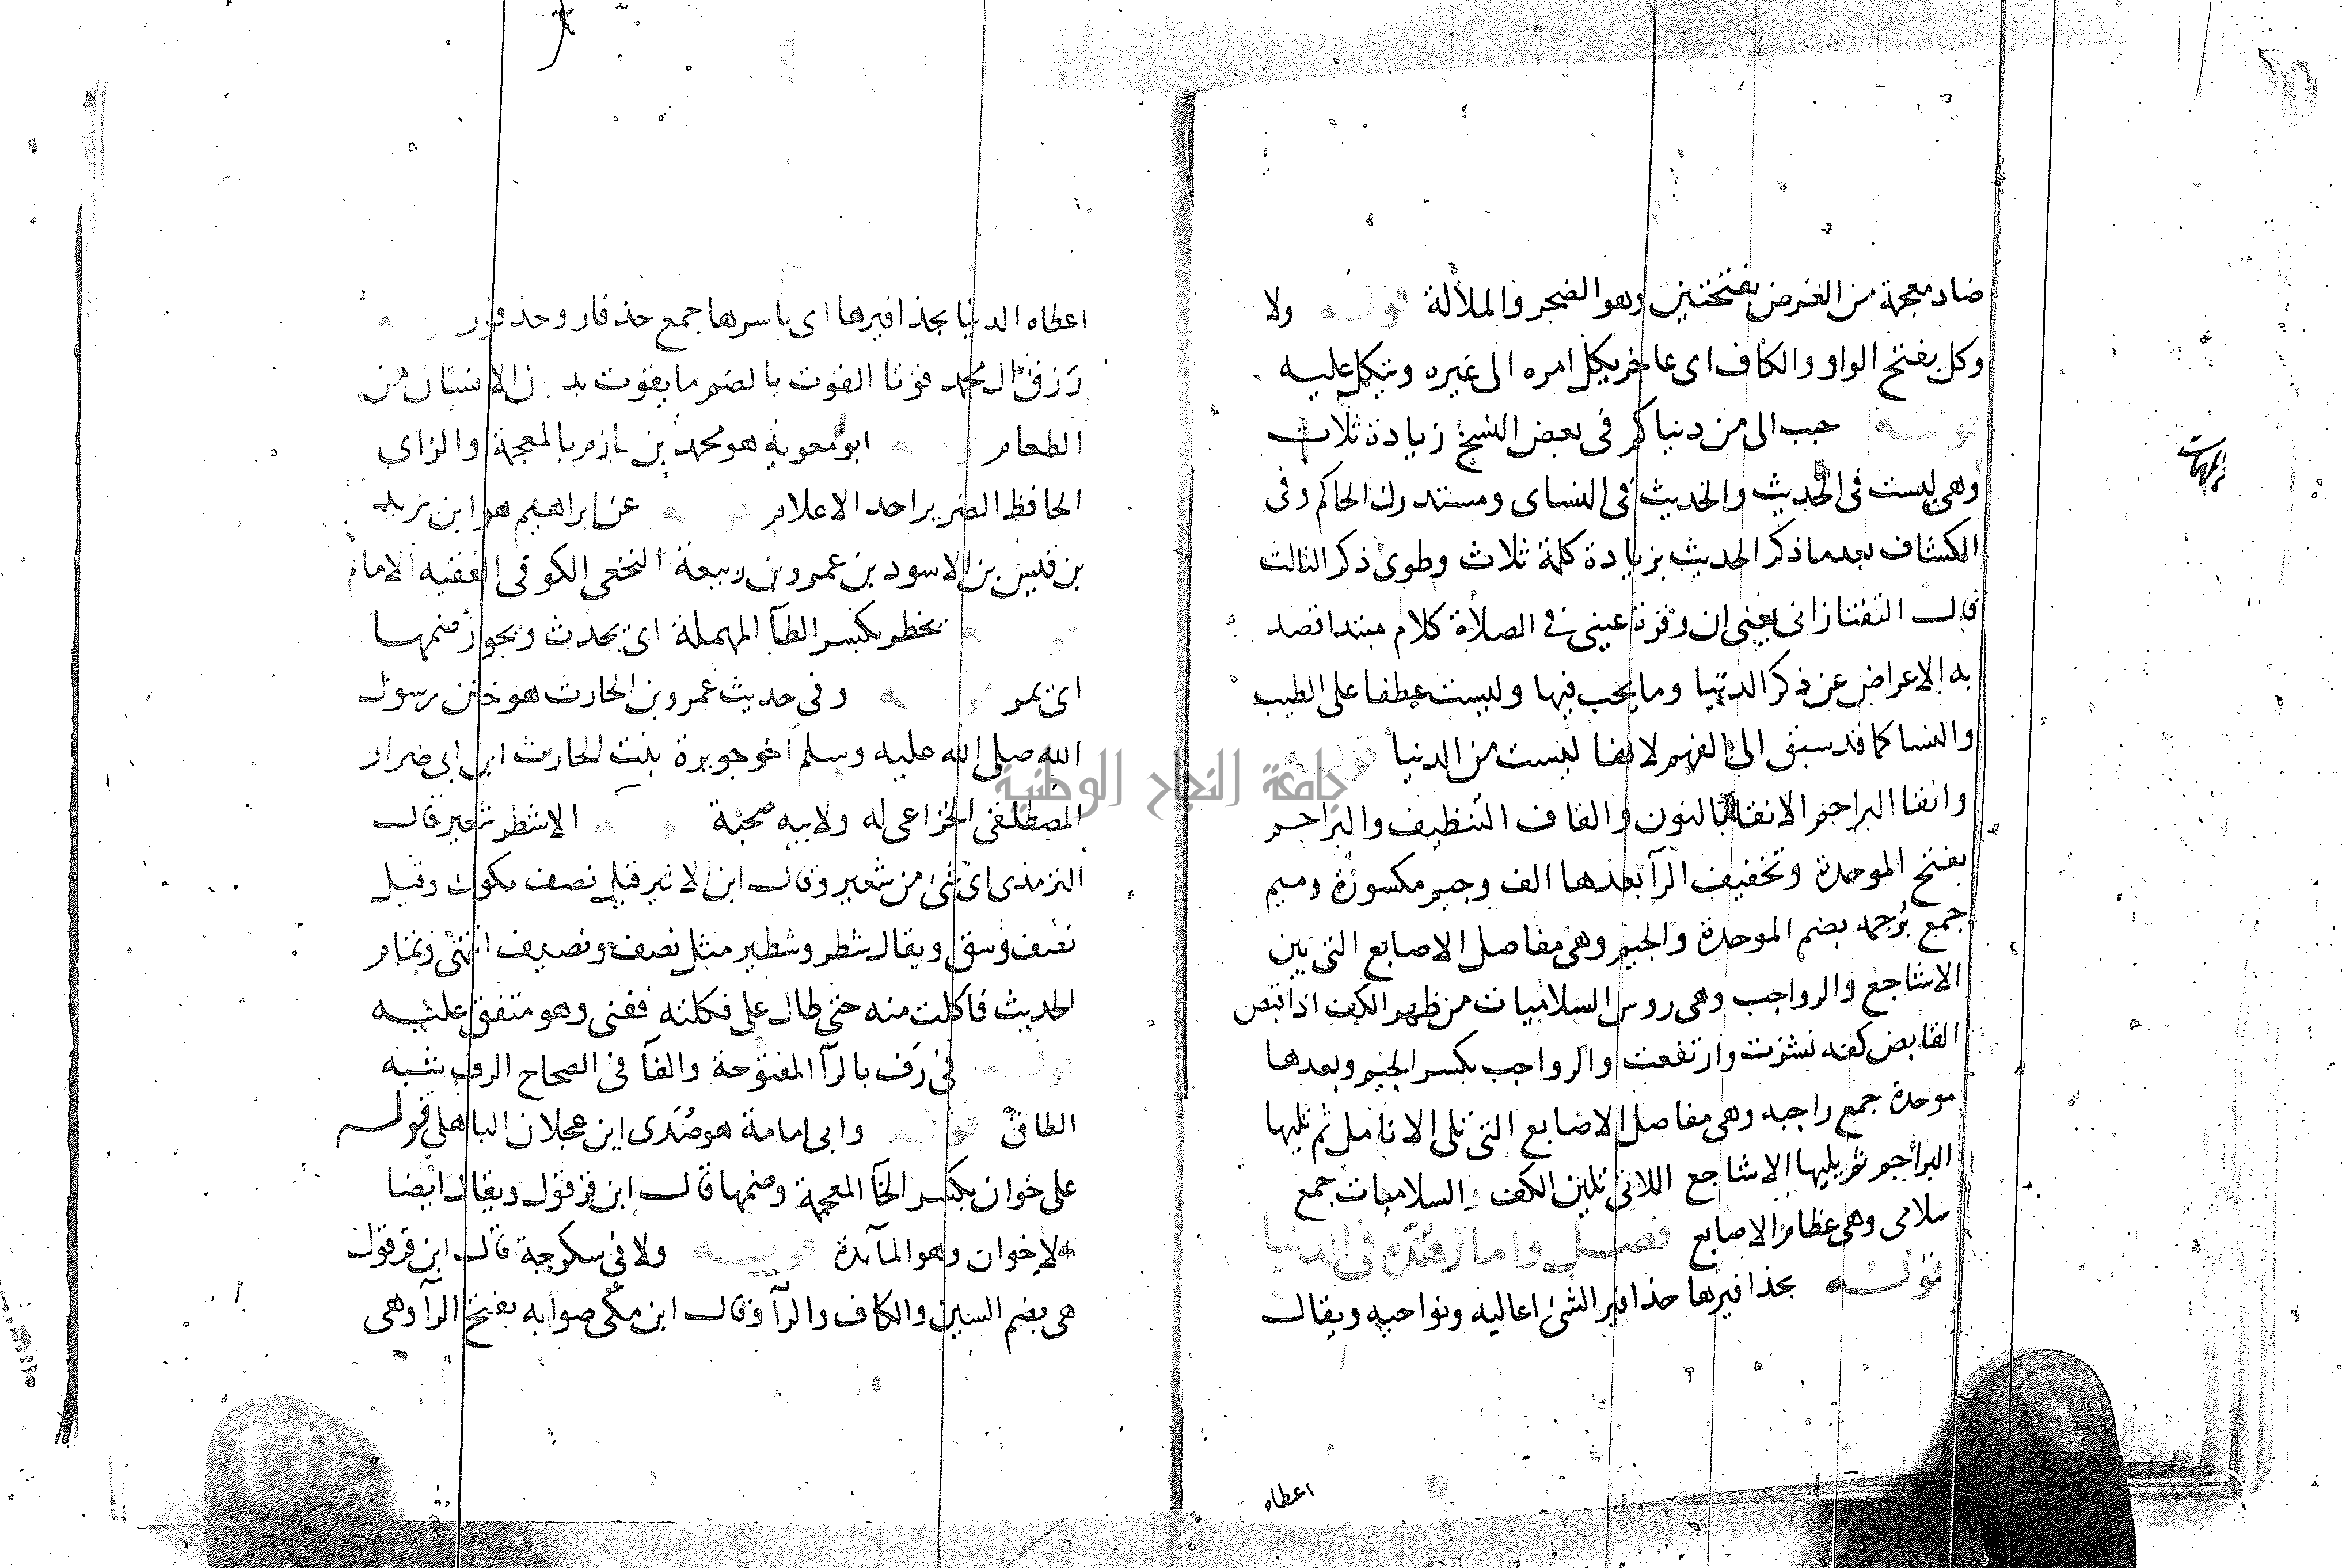 ضاد معجمة من الغرض بفتحتين وهو الضجر والملالة قوله ولا
وكل بفتح الواو والكاف اى عاجز يكل امره الى غيره ويتكل عليه
قوله حبب الى من دنياكم فى بعض النسخ زيادة ثلاث
وهى ليست فى الحديث والحديث فى النساى ومستدرك الحاكم وفى
الكشاف بعد ما ذكر الحديث بزيادة كلمة ثلاث وطوى ذكر الثالث
قال التفتازانى يعنى ان وقرة عينى فى الصلاة كلام مبتدا قصد
به الاعراض عن ذكر الدنيا وما يحب فيها وليست عطفا على الطيب
والنسا كما قد سبق الى الفهم لانها ليست من الدنيا قوله
وانقا البراجم الانقا بالنون والقاف التنظيف والبراجم
بفتح الموحدة وتخفيف الرآ بعدها الف وجيم مكسورة وميم
جمع برجمه بضم الموحدة والجيم وهى مفاصل الاصابع التى بين
الاشاجع والرواجب وهى روس السلاميات من ظهر الكف اذا قبض
القابض كفه نشزت وارتفعت والرواجب بكسر الجيم وبعدها
موحدة جمع راجبه وهى مفاصل الاصابع التى تلى الانامل ثم تليها
البراجم ثم يليها الاشاجع اللاتى تلين الكف والسلاميات جمع
سلامى وهى عظام الاصابع فصل واما زهده فى الدنيا
قوله بحذافيرها حذافير الشئ اعاليه ونواحيه ويقال
اعطاه
اعطاه الدنيا بحذافيرها اى باسرها جمع حذفار وحذفور
رزق ال محمد قوتا القوت بالضم ما يقوت به بدن الانسان من
الطعام ابو معوية هو محمد بن خازم بالمعجمة والزاى
الحافظ الضرير احد الاعلام قوله عن ابراهيم هو ابن يزيد
بن قيس بن الاسود بن عمرو بن ربيعة النخعى الكوفى الفقيه الامام
قوله يخطر بكسر الطآ المهملة اى يحدث ويجوز ضمها
اى يمر قوله وفى حديث عمرو بن الحارث هو ختن رسول
الله صلى الله عليه وسلم اخو جويرة بنت الحارث ابن ابى ضرار
المصطلقى الخزاعى له ولابيه صحبة الا شطر شعير قال
الترمذى اى شئ من شعير وقال ابن الاثير قيل نصف مكوك وقيل
نصف وسق ويقال شطر وشطير مثل نصف ونصيف انتهى وتمام
الحديث فاكلت منه حتى طال على فكلته ففنى وهو متفق عليه
قوله فى رف بالرآ المفتوحة والفآ فى الصحاح الرف شبه
الطاق قوله وابى امامة هو صدى ابن عجلان الباهلى قوله
على خوان بكسر الخآ المعجمة وضمها قال ابن قرقول ويقال ايضا
اخوان وهو المآيدة قوله ولا فى سكرجة قال ابن قرقول
هى بضم السين والكاف والرآ وقال ابن مكى صوابه بفتح الرآ وهى
جامعة النجاح الوطنية